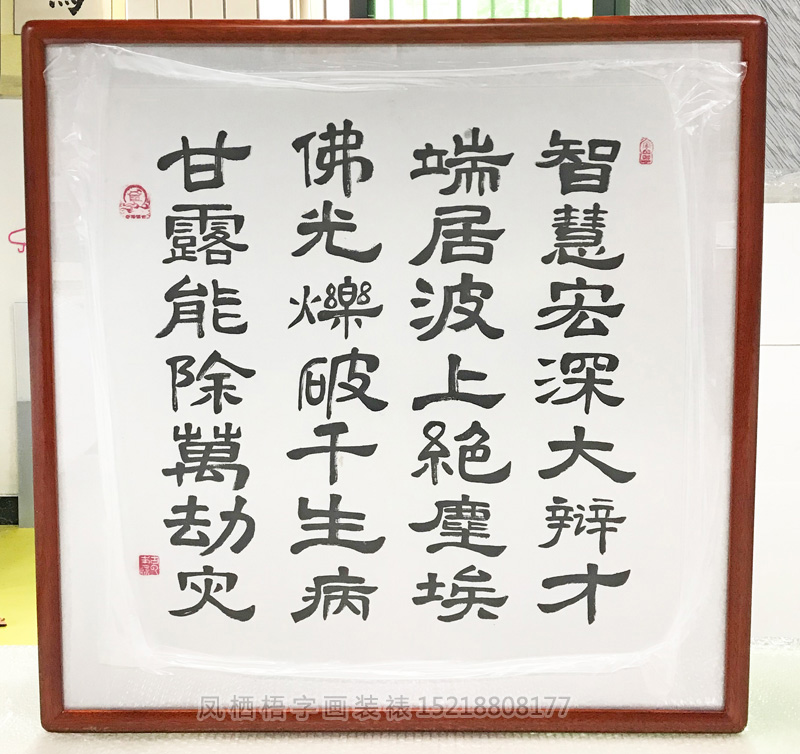 智慧宏深大辩才
端居波上絶塵埃
佛光爍破千生病
甘露能除萬劫灾
凤栖梧字画装裱15218808177